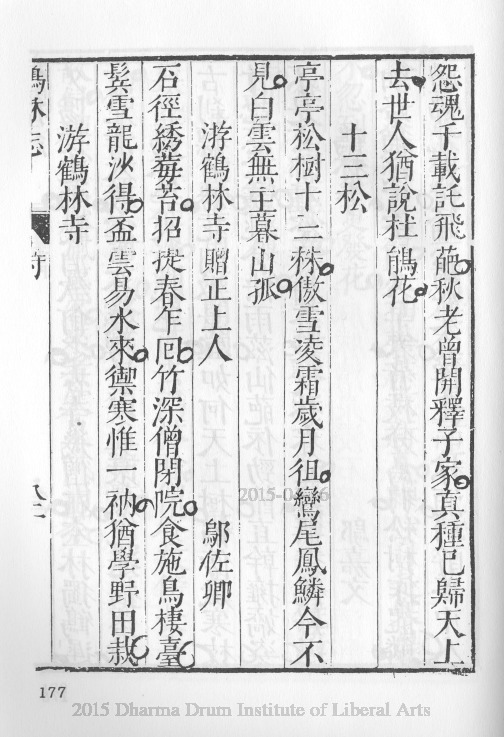 怨魂千載託飛葩秋老曾開釋子家真種已歸天上
去世人猶說杜鵑花
十三松
亭亭松樹十三株傲雪凌霜歲月徂鸞尾鳳鱗今不
見白雲無主暮山孤
游鶴林寺贈正上人 鄔佐卿
石徑綉莓苔招提春乍回竹深僧閉院食施鳥棲臺
鬂雪龍沙得盃雲易水來禦寒惟一衲猶學野田栽
游鶴林寺
鶴林志
177
2015 Dharma Drum Institute of Liberal Arts